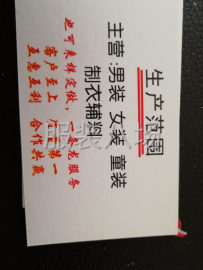 生产范围
主营:男装 女装 童装
制衣辅料
也可来样定做,一条龙服务
客户至上 第一
互惠互利 合作共赢